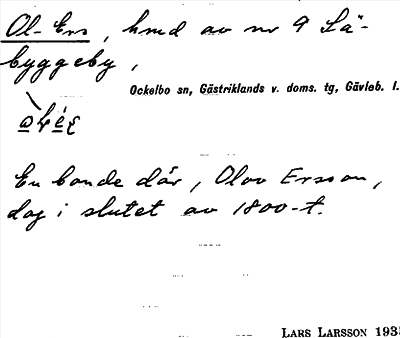 Ol-Ers, hmd av nr 9 Lå-
byggeby,
Ockelbo sn, Gästriklands v. doms. tg, Gävleb. l.
En bonde där, Olov Ersson,
dog i slutet av 1800-t.
LARS LARSSON 1935